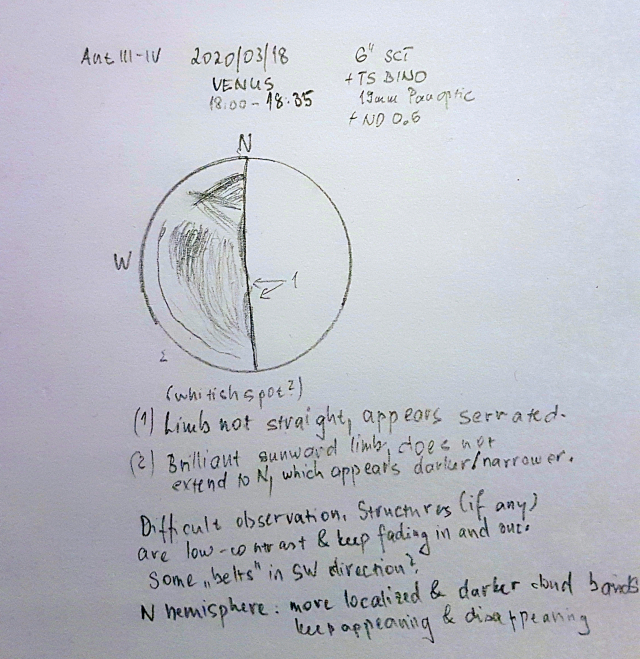 Ant III-IV 2020/03/18 6" SCT
VENUS + TS BINO
18:00 - 18:35 19mm Panoptic
+ ND 0.6
N
W
1
2
(whitish spot?)
(1) Limb not straight, appears serrated.
(2) Brilliant sunward limb, does not
extend to N, which appears darker/narrower.
Difficult observation. Structures (if any)
are low-contrast & keep fading in and out.
Some „belts" in SW direction?
N hemisphere: more localized & darker cloud bands
keep appearing & disappearing